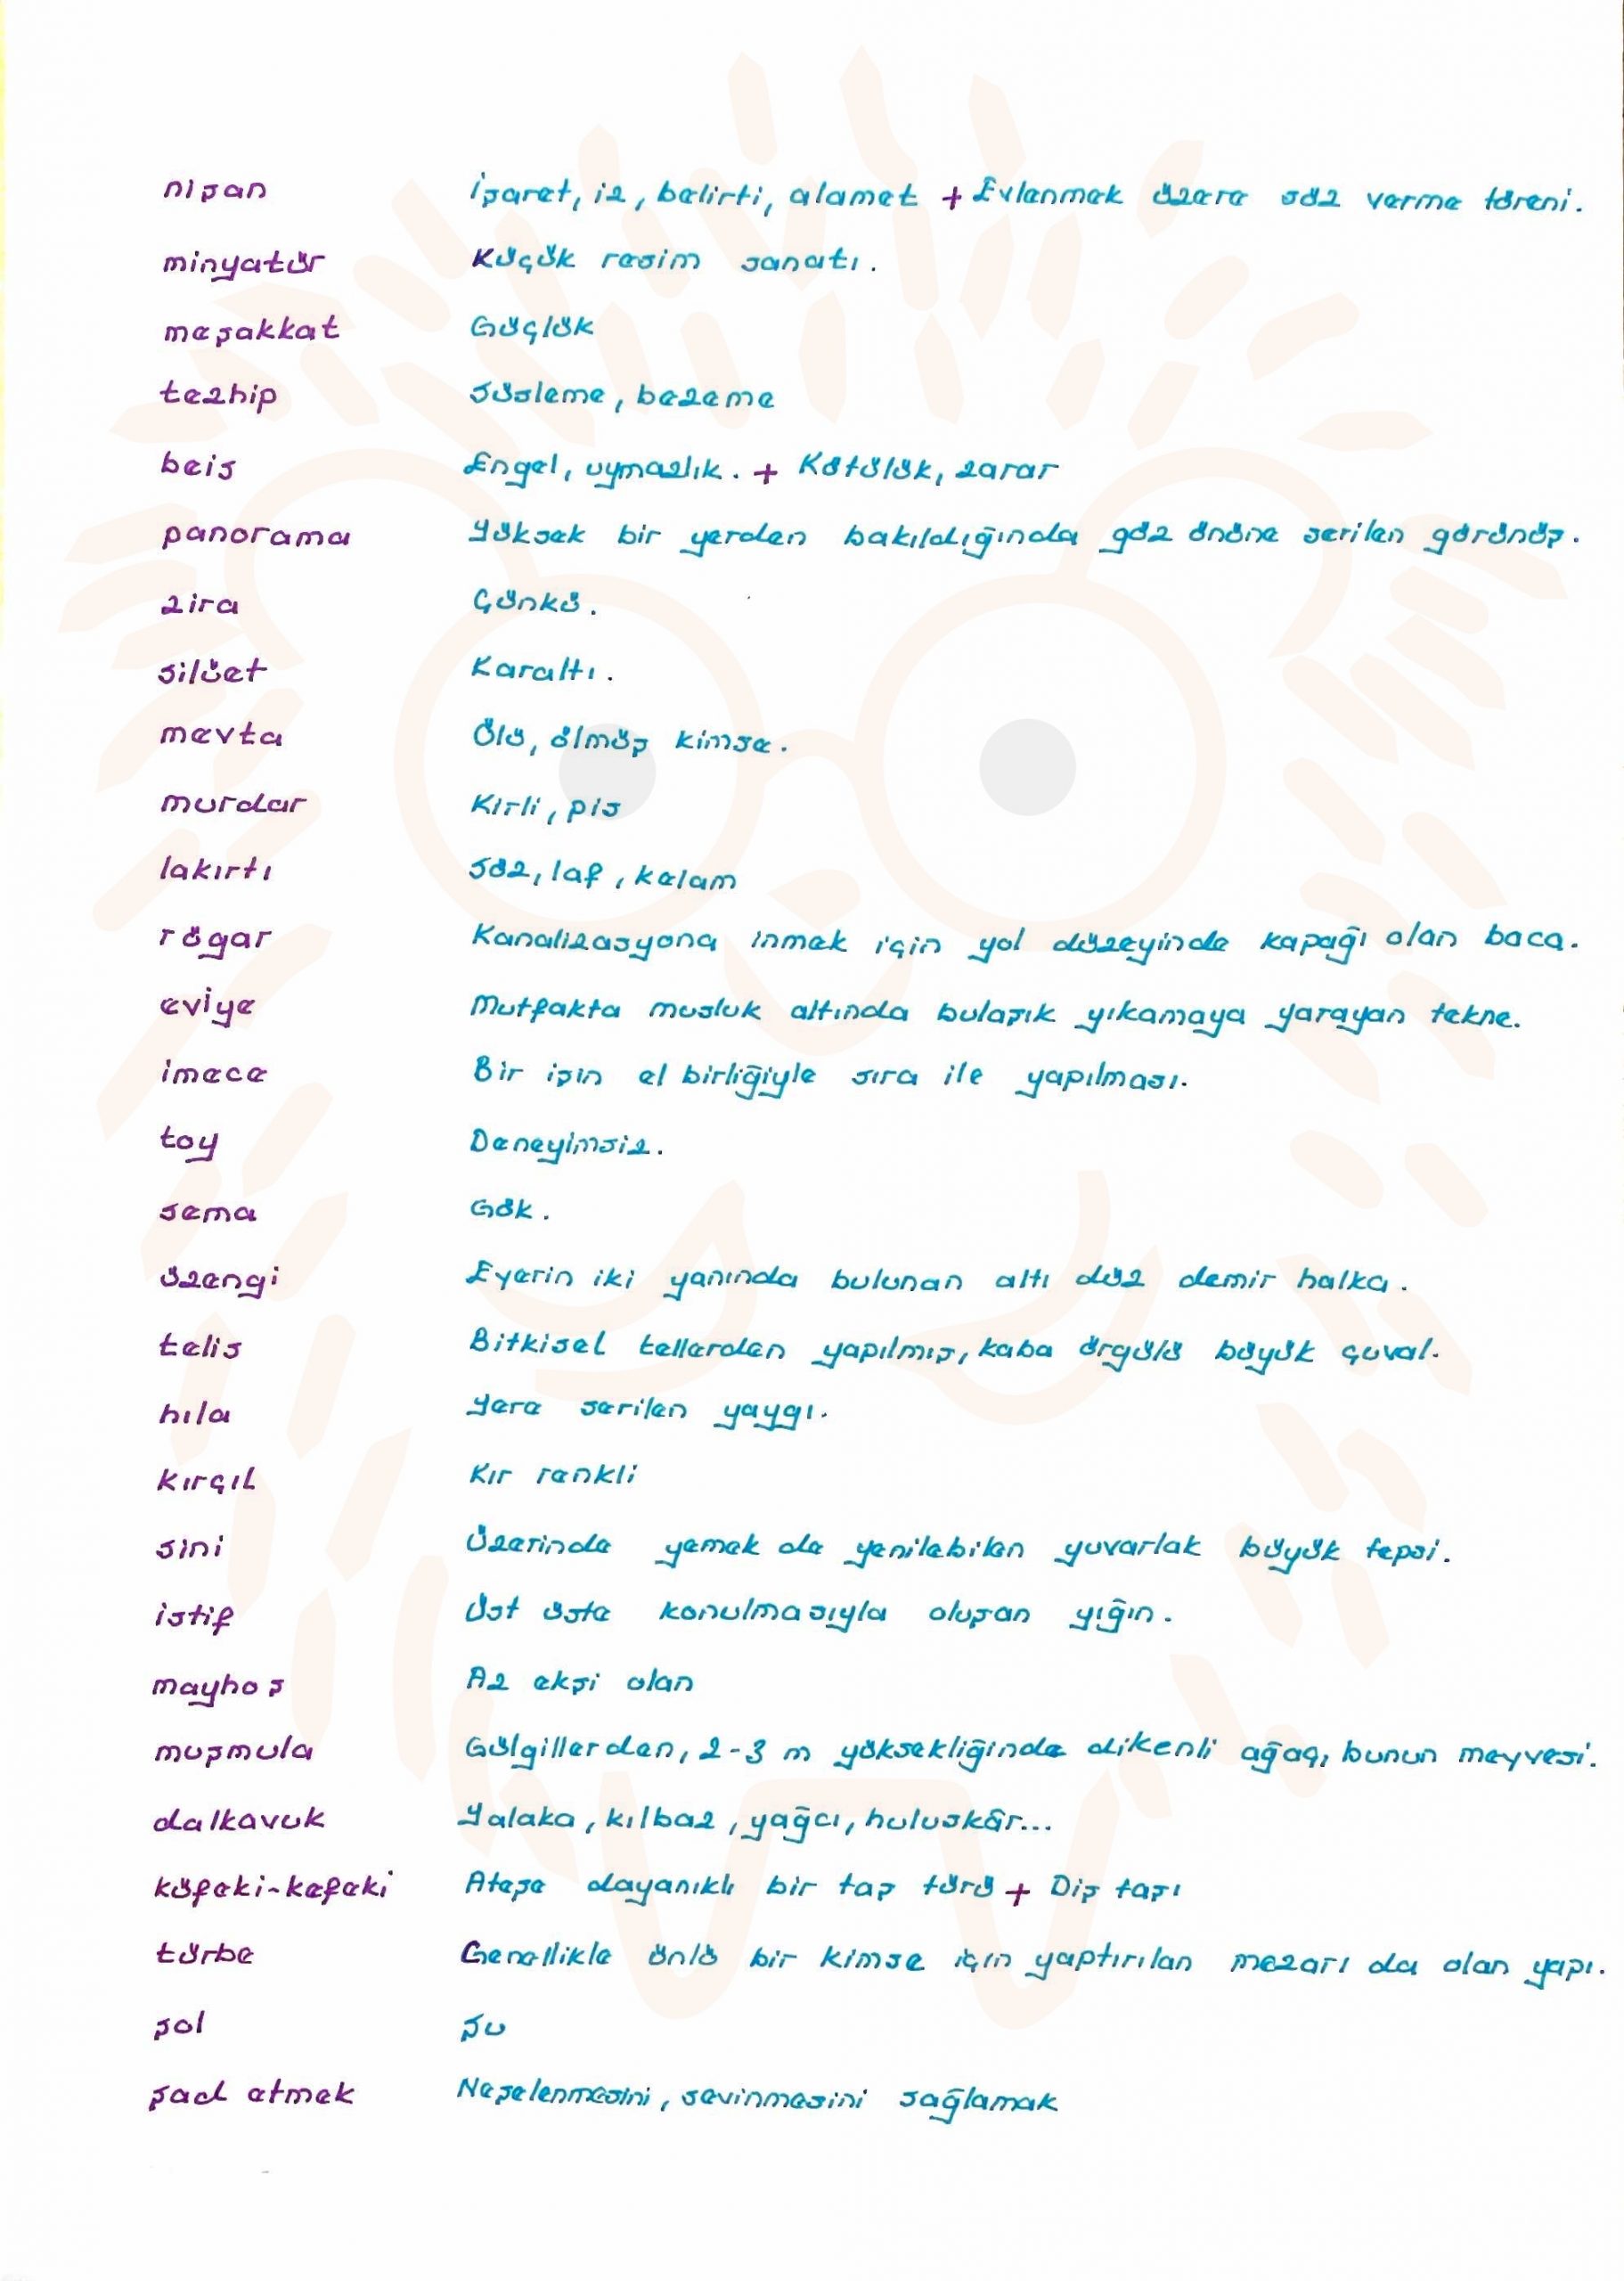 nişan İşaret, iz, belirti, alamet + Evlenmek üzere söz verme töreni.
minyatür Küçük resim sanatı.
meşakkat Güçlük
tezhip Süsleme, bezeme
beis Engel, uymazlık. + Kötülük, zarar
panorama Yüksek bir yerden bakıldığında göz önüne serilen görünüş.
zira Çünkü.
silüet Karaltı.
mevta Ölü, ölmüş kimse.
murdar Kirli, pis
lakırtı Söz, laf, kelam
rögar Kanalizasyona inmek için yol düzeyinde kapağı olan baca.
eviye Mutfakta musluk altında bulaşık yıkamaya yarayan tekne.
imece Bir işin el birliğiyle sıra ile yapılması.
toy Deneyimsiz.
sema Gök.
üzengi Eyerin iki yanında bulunan altı düz demir halka.
telis Bitkisel tellerden yapılmış, kaba örgülü büyük çuval.
hıla Yere serilen yaygı.
kırçıl Kır renkli
sini Üzerinde yemek de yenilebilen yuvarlak büyük tepsi.
istif Üst üste konulmasıyla oluşan yığın.
mayhoş Az ekşi olan
muşmula Gülgillerden, 2-3 m yüksekliğinde dikenli ağaç, bunun meyvesi.
dalkavuk Yalaka, kılbaz, yağcı, huluskâr...
küfeki-kefeki Ateşe dayanıklı bir taş türü + Diş taşı
türbe Genellikle ünlü bir kimse için yaptırılan mezarı da olan yapı.
şol Şu
şad etmek Neşelenmesini, sevinmesini sağlamak